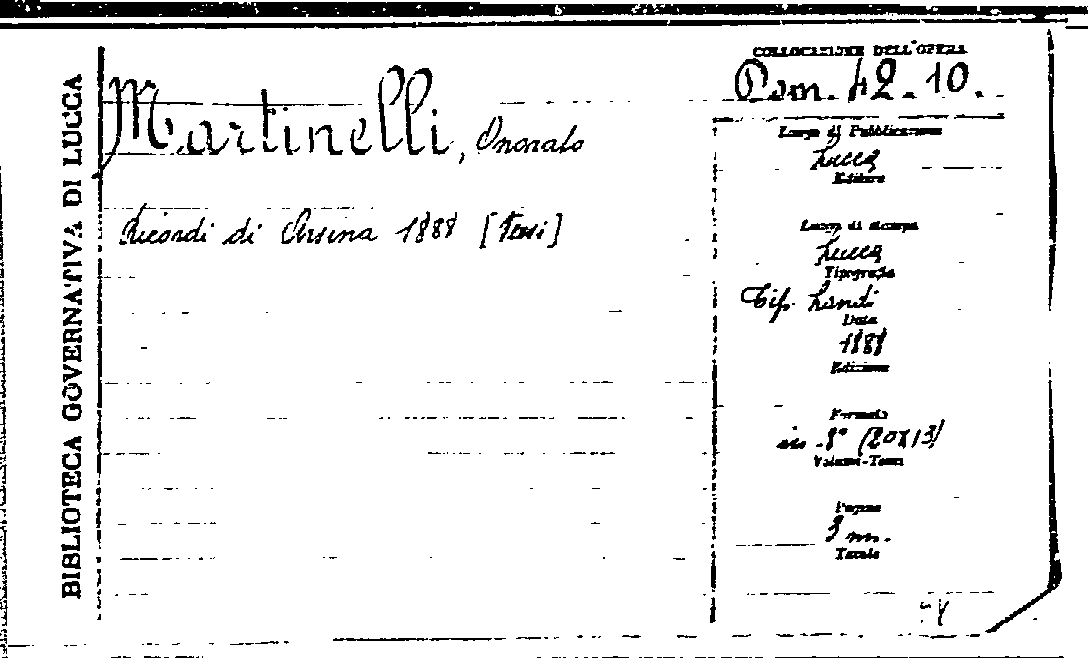 BIBLIOTECA GOVERNATIVA DI LUCCA
Martinelli, Onorato
Ricordi di Arsina 1888 [Versi]
COLLOCAZIONE DELL'OPERA
Dom. 42.10.
Luogo di Pubblicazione
Lucca
Editore
Luogo di stampa
Lucca
Tipografia
Tip. Landi
Data
1888
Edizione
Formato
in 8° (20x13)
Volumi-Tomi
Pagine
nn.
Tavole